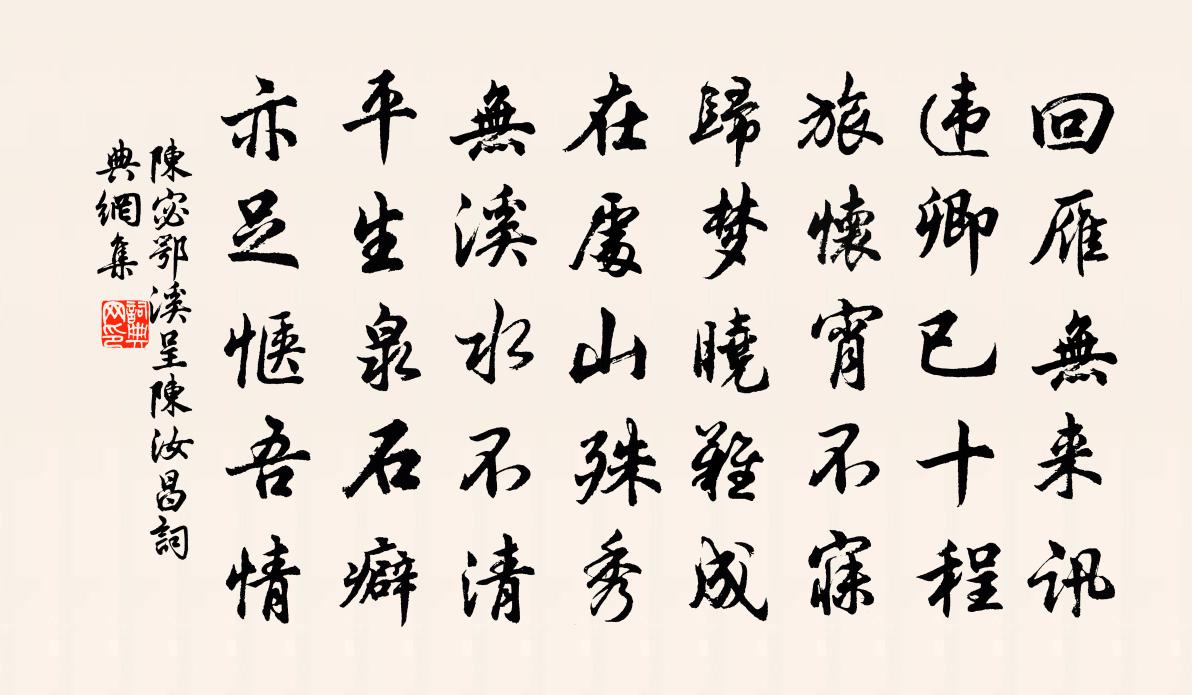 回雁無来訊
违卿已十程
旅懷宵不寐
歸梦曉難成
在處山殊秀
無溪水不清
平生泉石癖
亦足愜吾情
陳宓鄂溪呈陳汝昌詞
典網集
詞典
网印